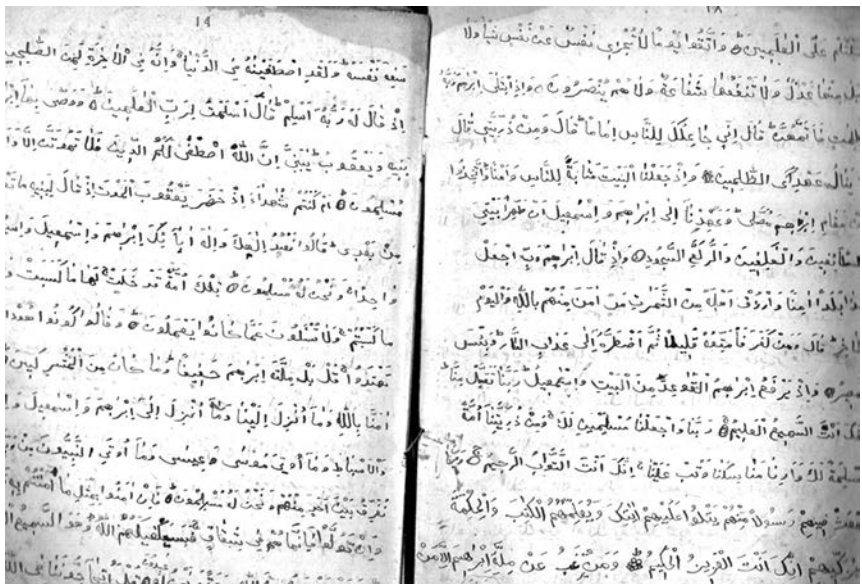 ١٨
عَلَى الْعٰلَمِينَ وَاتَّقُوا يَوْمًا لَا تَجْزِي نَفْسٌ عَنْ نَفْسٍ شَيْئًا وَلَا
مِنْهَا عَدْلٌ وَلَا تَنْفَعُهَا شَفَاعَةٌ وَلَا هُمْ يُنْصَرُونَ وَإِذِ ابْتَلٰى إِبْرٰهٖمَ رَبُّهُ
فَأَتَمَّهُنَّ قَالَ إِنِّي جَاعِلُكَ لِلنَّاسِ إِمَامًا قَالَ وَمِنْ ذُرِّيَّتِي قَالَ
يَنَالُ عَهْدِي الظّٰلِمِينَ وَإِذْ جَعَلْنَا الْبَيْتَ مَثَابَةً لِلنَّاسِ وَأَمْنًا وَاتَّخِذُوا
مَقَامِ إِبْرٰهٖمَ مُصَلًّى وَعَهِدْنَا إِلٰى إِبْرٰهٖمَ وَإِسْمٰعِيلَ أَنْ طَهِّرَا بَيْتِيَ
لِلطَّائِفِينَ وَالْعٰكِفِينَ وَالرُّكَّعِ السُّجُودِ وَإِذْ قَالَ إِبْرٰهٖمُ رَبِّ اجْعَلْ
هٰذَا بَلَدًا اٰمِنًا وَارْزُقْ أَهْلَهُ مِنَ الثَّمَرٰتِ مَنْ اٰمَنَ مِنْهُمْ بِاللّٰهِ وَالْيَوْمِ
الْاٰخِرِ قَالَ وَمَنْ كَفَرَ فَأُمَتِّعُهُ قَلِيلًا ثُمَّ أَضْطَرُّهُ إِلٰى عَذَابِ النَّارِ وَبِئْسَ
الْمَصِيرُ وَإِذْ يَرْفَعُ إِبْرٰهٖمُ الْقَوَاعِدَ مِنَ الْبَيْتِ وَإِسْمٰعِيلُ رَبَّنَا تَقَبَّلْ مِنَّا
إِنَّكَ أَنْتَ السَّمِيعُ الْعَلِيمُ رَبَّنَا وَاجْعَلْنَا مُسْلِمَيْنِ لَكَ وَمِنْ ذُرِّيَّتِنَا أُمَّةً
مُسْلِمَةً لَكَ وَأَرِنَا مَنَاسِكَنَا وَتُبْ عَلَيْنَا إِنَّكَ أَنْتَ التَّوَّابُ الرَّحِيمُ رَبَّنَا
وَابْعَثْ فِيهِمْ رَسُولًا مِنْهُمْ يَتْلُوا عَلَيْهِمْ اٰيٰتِكَ وَيُعَلِّمُهُمُ الْكِتٰبَ وَالْحِكْمَةَ
وَيُزَكِّيهِمْ إِنَّكَ أَنْتَ الْعَزِيزُ الْحَكِيمُ وَمَنْ يَرْغَبُ عَنْ مِلَّةِ إِبْرٰهٖمَ إِلَّا مَنْ
14
سَفِهَ نَفْسَهُ وَلَقَدِ اصْطَفَيْنٰهُ فِي الدُّنْيَا وَإِنَّهُ فِي الْاٰخِرَةِ لَمِنَ الصّٰلِحِينَ
إِذْ قَالَ لَهُ رَبُّهُ أَسْلِمْ قَالَ أَسْلَمْتُ لِرَبِّ الْعٰلَمِينَ وَوَصّٰى بِهَا
بَنِيهِ وَيَعْقُوبُ يٰبَنِيَّ إِنَّ اللّٰهَ اصْطَفٰى لَكُمُ الدِّينَ فَلَا تَمُوتُنَّ إِلَّا وَأَنْتُمْ
مُسْلِمُونَ أَمْ كُنْتُمْ شُهَدَاءَ إِذْ حَضَرَ يَعْقُوبَ الْمَوْتُ إِذْ قَالَ لِبَنِيهِ مَا
مِنْ بَعْدِي قَالُوا نَعْبُدُ إِلٰهَكَ وَإِلٰهَ اٰبَائِكَ إِبْرٰهٖمَ وَإِسْمٰعِيلَ
وَاحِدًا وَنَحْنُ لَهُ مُسْلِمُونَ تِلْكَ أُمَّةٌ قَدْ خَلَتْ لَهَا مَا كَسَبَتْ
مَا كَسَبْتُمْ وَلَا تُسْـَٔلُونَ عَمَّا كَانُوا يَعْمَلُونَ وَقَالُوا كُونُوا هُودًا
تَهْتَدُوا قُلْ بَلْ مِلَّةَ إِبْرٰهٖمَ حَنِيفًا وَمَا كَانَ مِنَ الْمُشْرِكِينَ
اٰمَنَّا بِاللّٰهِ وَمَا أُنْزِلَ إِلَيْنَا وَمَا أُنْزِلَ إِلٰى إِبْرٰهٖمَ وَإِسْمٰعِيلَ
وَالْأَسْبَاطِ وَمَا أُوتِيَ مُوسٰى وَعِيسٰى وَمَا أُوتِيَ النَّبِيُّونَ مِنْ
نُفَرِّقُ بَيْنَ أَحَدٍ مِنْهُمْ وَنَحْنُ لَهُ مُسْلِمُونَ فَإِنْ اٰمَنُوا بِمِثْلِ مَا اٰمَنْتُمْ بِهِ
وَإِنْ تَوَلَّوْا فَإِنَّمَا هُمْ فِي شِقَاقٍ فَسَيَكْفِيكَهُمُ اللّٰهُ وَهُوَ السَّمِيعُ